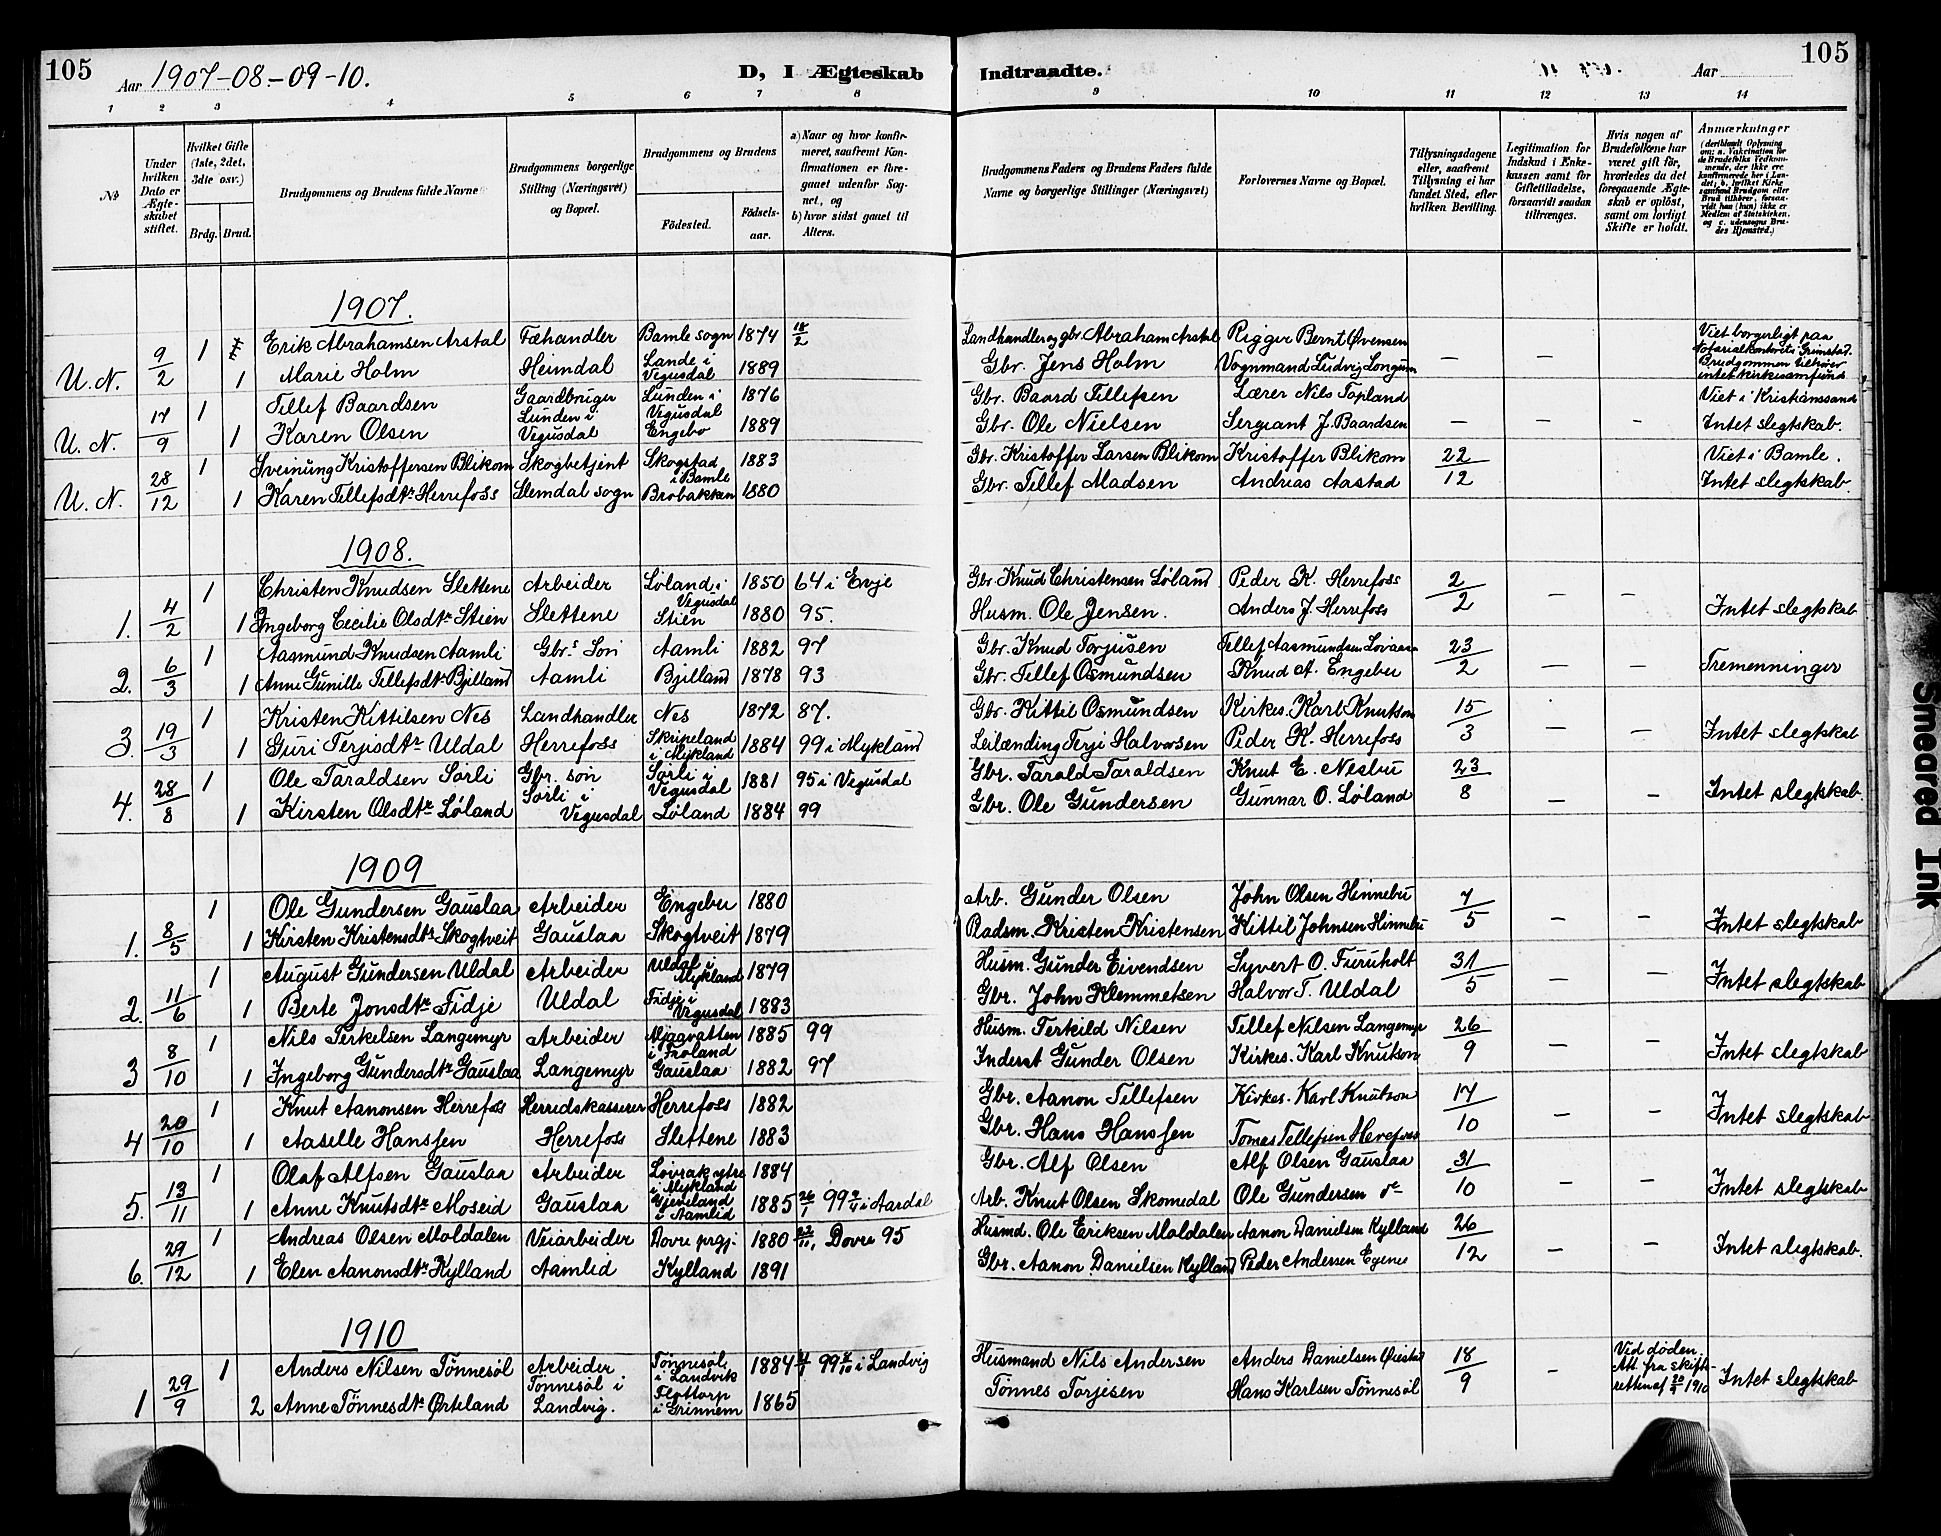 105
Aar 1907-08-09-10.
D, I Ægteskab Indtraadte.
Aar
105
1 2 3 4 5 6 7 8 9 10 11 12 13 14
№
Under hvilken Dato er Ægteskabet stiftet.
Hvilket Gifte (1ste, 2det, 3die osv.)
Brdg. Brud.
Brudgommens og Brudens fulde Navne
Brudgommens borgerlige Stilling (Næringsvei) og Bopæl.
Brudgommens og Brudens
Födested.
Födselsaar.
a) Naar og hvor konfirmeret, saafremt Konfirmationen er foregaaet udenfor Sognet, og
b) hvor sidst gaaet til Alters.
Brudgommens Faders og Brudens Faders fulde Navne og borgerlige Stillinger (Næringsvei)
Forlovernes Navne og Bopæl.
Tillysningsdagene eller, saafremt Tillysning ei har fundet Sted, efter hvilken Bevilling.
Legitimation for Indskud i Enkekassen samt for Giftetilladelse, forsaavidt saadan tiltrænges.
Hvis nogen af Brudefolkene har været gift för, hvorledes da det foregaaende Ægteskab er oplöst, samt om lovligt Skifte er holdt.
Anmærkninger (deriblandt Oplysning om: a. Vakcination for de Brudefolks Vedkommende, der ikke ere konfirmerede her i Landet; b. hvilket Kirkesamfund Brudgom eller Brud tilhörer, forsaavidt han (hun) ikke er Medlem af Statskirken. og c. udensogns Brudes Hjemsted.)
1907.
Erik Abrahamsen Arstal Fæhandler Bamle sogn 1874 18/2 Landhandler og gbr. Abraham Arstal Rigger Bernt Øvensen Viet borgerligt paa Notarialkontoret i Grimstad.
U. N. 9/2 1 1 Marie Holm Heimdal Lande i Vegusdal 1889 Gbr. Jens Holm Vognmand Ludvig Longum – – Brudgommen tilhører intet kirkesamfund
1 Tellef Baardsen Gaardbruger Lunden i Vegusdal 1876 Gbr. Baard Tellefsen Lærer Nils Topland Viet i Kristianssand
U. N. 17/9 1 Karen Olsen Lunden i Vegusdal Engebo 1889 Gbr. Ole Nielsen Sergiant J. Baardsen – – – Intet slegtskab.
1 Sveinung Kristoffersen Blikom Skogbetjent Skogstad i Bamle 1883 Gbr. Kristoffer Larsen Blikom Kristoffer Blikom 22/12 Viet i Bamle.
U. N. 28/12 1 Karen Tellefsdtr Herrefoss Slemdal sogn Brobakken 1880 Gbr. Tellef Madsen Andreas Aastad Intet slegtskab.
1908.
1 Christen Knudsen Slettene Arbeider Løland i Vegusdal 1850 64 i Evje Gbr. Knud Christensen Løland Peder K. Herrefoss 2/2
1. 4/2 1 Ingeborg Cecilie Olsdtr Stien Slettene Stien 1880 95. Husm. Ole Jensen. Anders J. Herrefoss – – Intet slegtskab
1 Aasmund Knudsen Aamli Gbrs Søn Aamli 1882 97 Gbr. Knud Torjusen Tellef Aasmundsen 23/2
2. 6/3 1 Anne Gunille Tellefsdtr Bjelland Aamli Bjelland 1878 93 Gbr. Tellef Osmundsen Knud A. Engebu – – Tremenninger
1 Kristen Kittilsen Nes Landhandler Nes 1872 87. Gbr. Kittil Osmundsen Kirkes. Karl Knutson 15/3
3. 19/3 1 Guri Terjisdtr Uldal Herrefoss Skripeland i Mykland 1884 99 i Mykland Leilænding Terje Halvorsen Peder K. Herrefoss – – Intet slegtskab
1 Ole Taraldsen Sørli Gbr. søn Sørli i Vegusdal 1881 95 i Vegusdal Gbr. Tarald Taraldsen Knut E. Nesbu 23/8
4. 28/8 1 Kirsten Olsdtr Løland Sørli i Vegusdal Løland 1884 99 Gbr. Ole Gundersen Gunnar O. Løland – – Intet slegtskab.
1909
1 Ole Gundersen Gauslaa Arbeider Engebu 1880 Arb. Gunder Olsen John Olsen Hinnebu 7/5
1. 8/5 1 Kirsten Kristensdtr Skogtveit Gauslaa Skogtveit 1879 Radsm. Kristen Kristensen Kittil Johnsen Hinnebu – – Intet slegtskab
1 August Gundersen Uldal Arbeider Uldal i Mykland 1879 Husm. Gunder Eivendsen Syvert O. Furuholt 31/5
2. 11/6 1 Berte Jonsdtr Fidje Uldal Fidje i Vegusdal 1883 Gbr. John Klemmetsen Halvor T. Uldal – – Intet slegtskab
1 Nils Terkelsen Langemyr Arbeider Mjaavatten i Froland 1885 99 Husm. Terkild Nilsen Tellef Nilsen Langemyr 26/9
3 8/10 1 Ingeborg Gundersdtr Gauslaa Langemyr Gauslaa 1882 97 Inderst Gunder Olsen Kirkes. Karl Knutson – – Intet slegtskab
1 Knut Aanonsen Herrefoss Herredskasserer Herrefoss 1882 Gbr. Aanon Tellefsen Kirkes. Karl Knutson 17/10
4 20/10 1 Aaselle Hanssen Herrefoss Slettene 1883 Gbr. Hans Hanssen Tomes Tellefsen Herefoss – – Intet slegtskab
1 Olaf Alfsen Gauslaa Arbeider Løvrak ytre i Mykland 1884 Gbr. Alf Olsen Alf Olsen Gauslaa 31/10
5. 13/11 1 Anne Knutsdtr Moseid Gauslaa Gjeveland i Aamlid 1885 26/1 99 i Aardal Arb. Knut Olsen Skomedal Ole Gundersen do – – Intet slegtskab
1 Andreas Olsen Moldalen Veiarbeider Dovre prgj. 1880 Dovre 95 Husmd. Ole Eriksen Moldalen Aanon Danielsen Kylland 26/12
6. 29/12 1 Elen Aanonsdtr Kylland Aamlid Kylland 1891 Gbr. Aanon Danielsen Kylland Peder Andersen Egenes – – Intet slegtskab.
1910
1 Anders Nilsen Tønnesøl Arbeider Tønnesøl i Landvik 1884 99 i Landvig Husmand Nils Andersen Anders Danielsen 18/9 Ved døden. Att fra skifteretten af 20/9 1910
1 29/9 2 Anne Tønnesdtr Ørteland Tønnesøl i Landvig. Flottorp i Grinnem 1865 Tønnes Torjesen Hans Karlsen Tønnesøl – Intet slegtskab
Smeared Ink